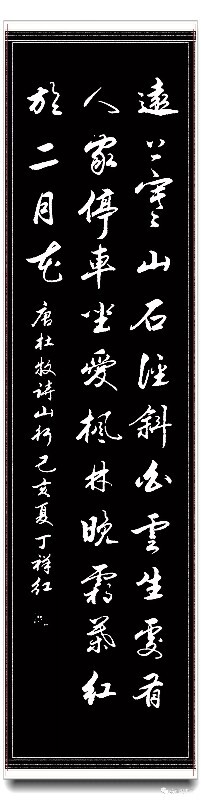 遠上寒山石徑斜白雲生處有
人家停車坐愛楓林晚霜葉紅
於二月花
唐杜牧詩山行己亥夏丁祥紅